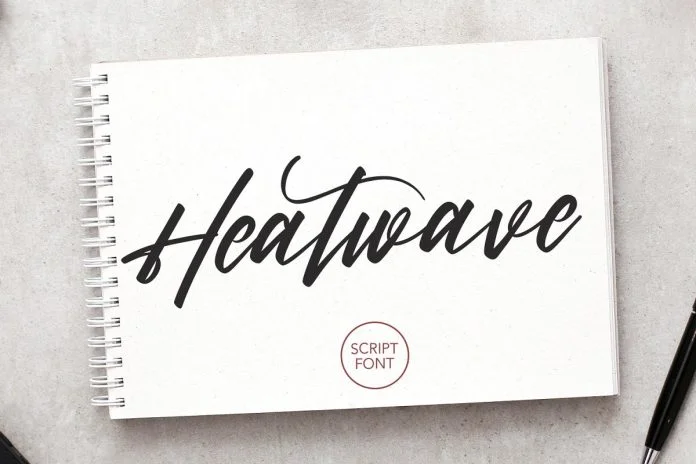 Heatwave
SCRIPT
FONT